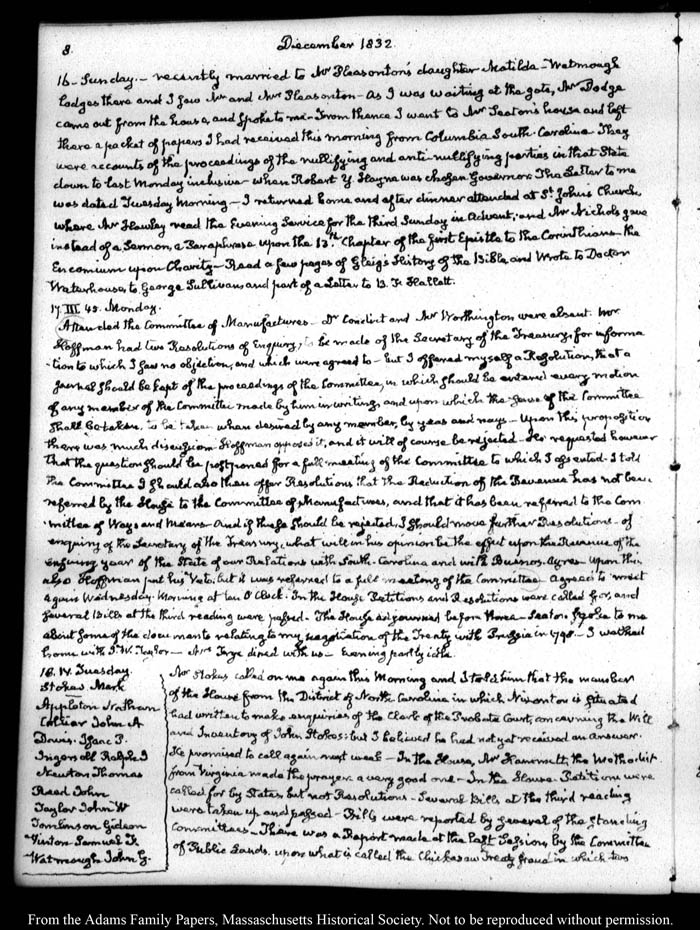 8. December 1832.
16. Sunday. — recently married to Mr Pleasonton's daughter Matilda — Watmough
lodges there and I saw Mr and Mrs Pleasonton — As I was waiting at the gate, Mr Dodge
came out from the house, and spoke to me — From thence I went to Mr Seaton's house and left
there a packet of papers I had received this morning from Columbia South-Carolina — They
were accounts of the proceedings of the nullifying and anti-nullifying parties in that State
down to last Monday inclusive — when Robert Y. Hayne was chosen Governor. The Letter to me
was dated Tuesday Morning — I returned home and after dinner attended at St. John's Church,
where Mr Hawley read the Evening Service for the third Sunday in Advent; and Mr Nichols gave
instead of a Sermon, a Paraphrase upon the 13th Chapter of the first Epistle to the Corinthians — the
Encomium upon Charity — Read a few pages of Gleig's History of the Bible, and Wrote to Doctor
Waterhouse, to George Sullivan and part of a Letter to B. F. Hallett.
17. III. 45. Monday.
Attended the Committee of Manufactures — Dr Condict and Mr Worthington were absent. Mr
Hoffman had two Resolutions of Enquiry, to be made of the Secretary of the Treasury, for informa
tion to which I saw no objection, and which were agreed to — but I offered myself a Resolution, that a
journal should be kept of the proceedings of the Committee, in which should be entered every motion
of any member of the Committee made by him in writing, and upon which the sense of the Committee
shall be taken, to be taken when desired by any member, by yeas and nays — Upon this proposition
there was much discussion. Hoffman opposes it, and it will of course be rejected. He requested however
that the question should be postponed for a full meeting of the Committee to which I assented. I told
the Committee I should also then offer Resolutions that the Reduction of the Revenue has not been
referred by the House to the Committee of Manufactures, and that it has been referred to the Com
mittee of Ways and Means — And if these should be rejected, I should move further Resolutions — of
enquiry of the Secretary of the Treasury, what will in his opinion be the effect upon the Revenue of the
ensuing year of the State of our Relations with South-Carolina and with Buenos-Ayres. Upon this
also Hoffman put his Veto; but it was referred to a full meeting of the Committee. Agreed to meet
again Wednesday Morning at ten O'Clock. In the House Petitions and Resolutions were called for, and
several Bills at the third reading were passed. The House adjourned before three — Seaton spoke to me
about some of the documents relating to my negotiation of the Treaty with Prussia in 1798 — I walked
home with J. W. Taylor — Mrs Frye dined with us — Evening partly idle.
18. IV. Tuesday
Stokes Mark
Appleton Nathan
Collier John A
Davis. Isaac P.
Ingersoll Ralph I
Newton Thomas
Reed John
Taylor John W
Tomlinson Gideon
Vinton Samuel F.
Watmough John G.
Mr Stokes called on me again this Morning and I told him that the member
of the House from the District of North Carolina in which Nixonton is situated
had written to make enquiries of the Clerk of the Probate Court, concerning the Will
and Inventory of John Stokes; but I believed he had not yet received an answer.
He promised to call again next week — In the House, Mr Hammett, the Methodist
from Virginia made the prayer: a very good one — In the House Petitions were
called for by States but not Resolutions — Several Bills at the third reading
were taken up and passed — Bills were reported by several of the standing
Committees — There was a Report made at the last Session, by the Committee
of Public Lands, upon what is called the Chickasaw Treaty fraud in which two
From the Adams Family Papers, Massachusetts Historical Society. Not to be reproduced without permission.